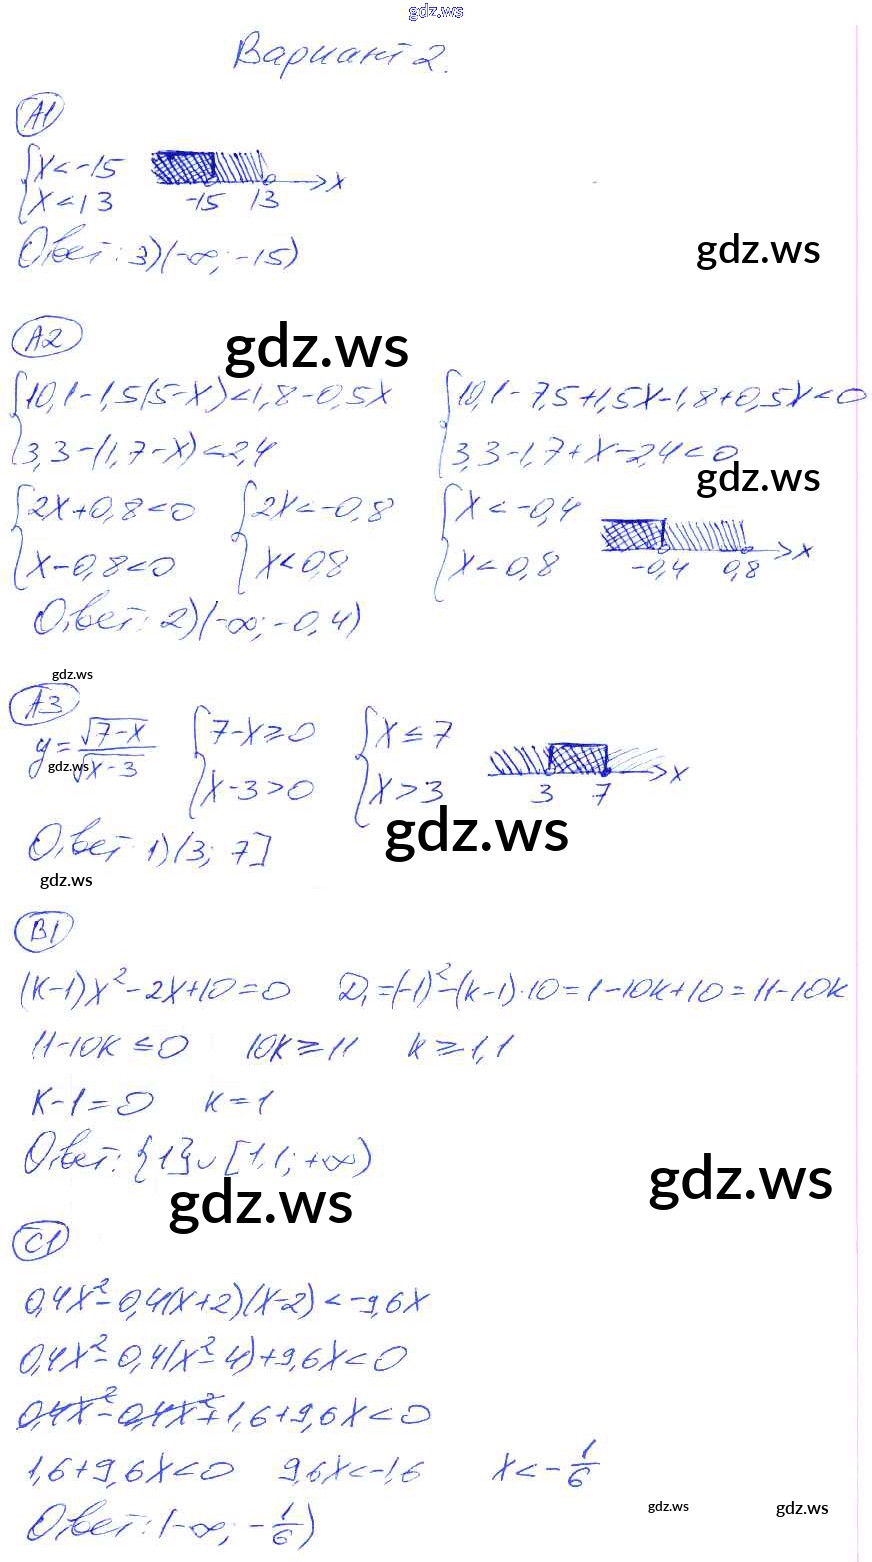 gdz.ws
Вариант 2.
А1
{x<-15
x<13
-15 13 x
Ответ: 3)(-∞; -15)
gdz.ws
А2
gdz.ws
{10,1-1,5(5-x)<1,8-0,5x {10,1-7,5+1,5x-1,8+0,5x<0
3,3-(1,7-x)<2,4 3,3-1,7+x-2,4<0
gdz.ws
{2x+0,8<0 {2x<-0,8 {x<-0,4
x-0,8<0 x<0,8 x<0,8
-0,4 0,8 x
Ответ: 2)(-∞; -0,4)
gdz.ws
А3
y=√(7-x)/√(x-3) {7-x≥0 {x≤7
x-3>0 x>3
gdz.ws
3 7 x
gdz.ws
Ответ 1)(3; 7]
gdz.ws
В1
(k-1)x²-2x+10=0 D₁=(-1)²-(k-1)·10=1-10k+10=11-10k
11-10k≤0 10k≥11 k≥1,1
k-1=0 k=1
Ответ: {1}∪[1,1; +∞)
gdz.ws
gdz.ws
С1
0,4x²-0,4(x+2)(x-2)<-9,6x
0,4x²-0,4(x²-4)+9,6x<0
0,4x²-0,4x²+1,6+9,6x<0
1,6+9,6x<0 9,6x<-1,6 x<-1/6
gdz.ws
gdz.ws
Ответ: (-∞; -1/6)